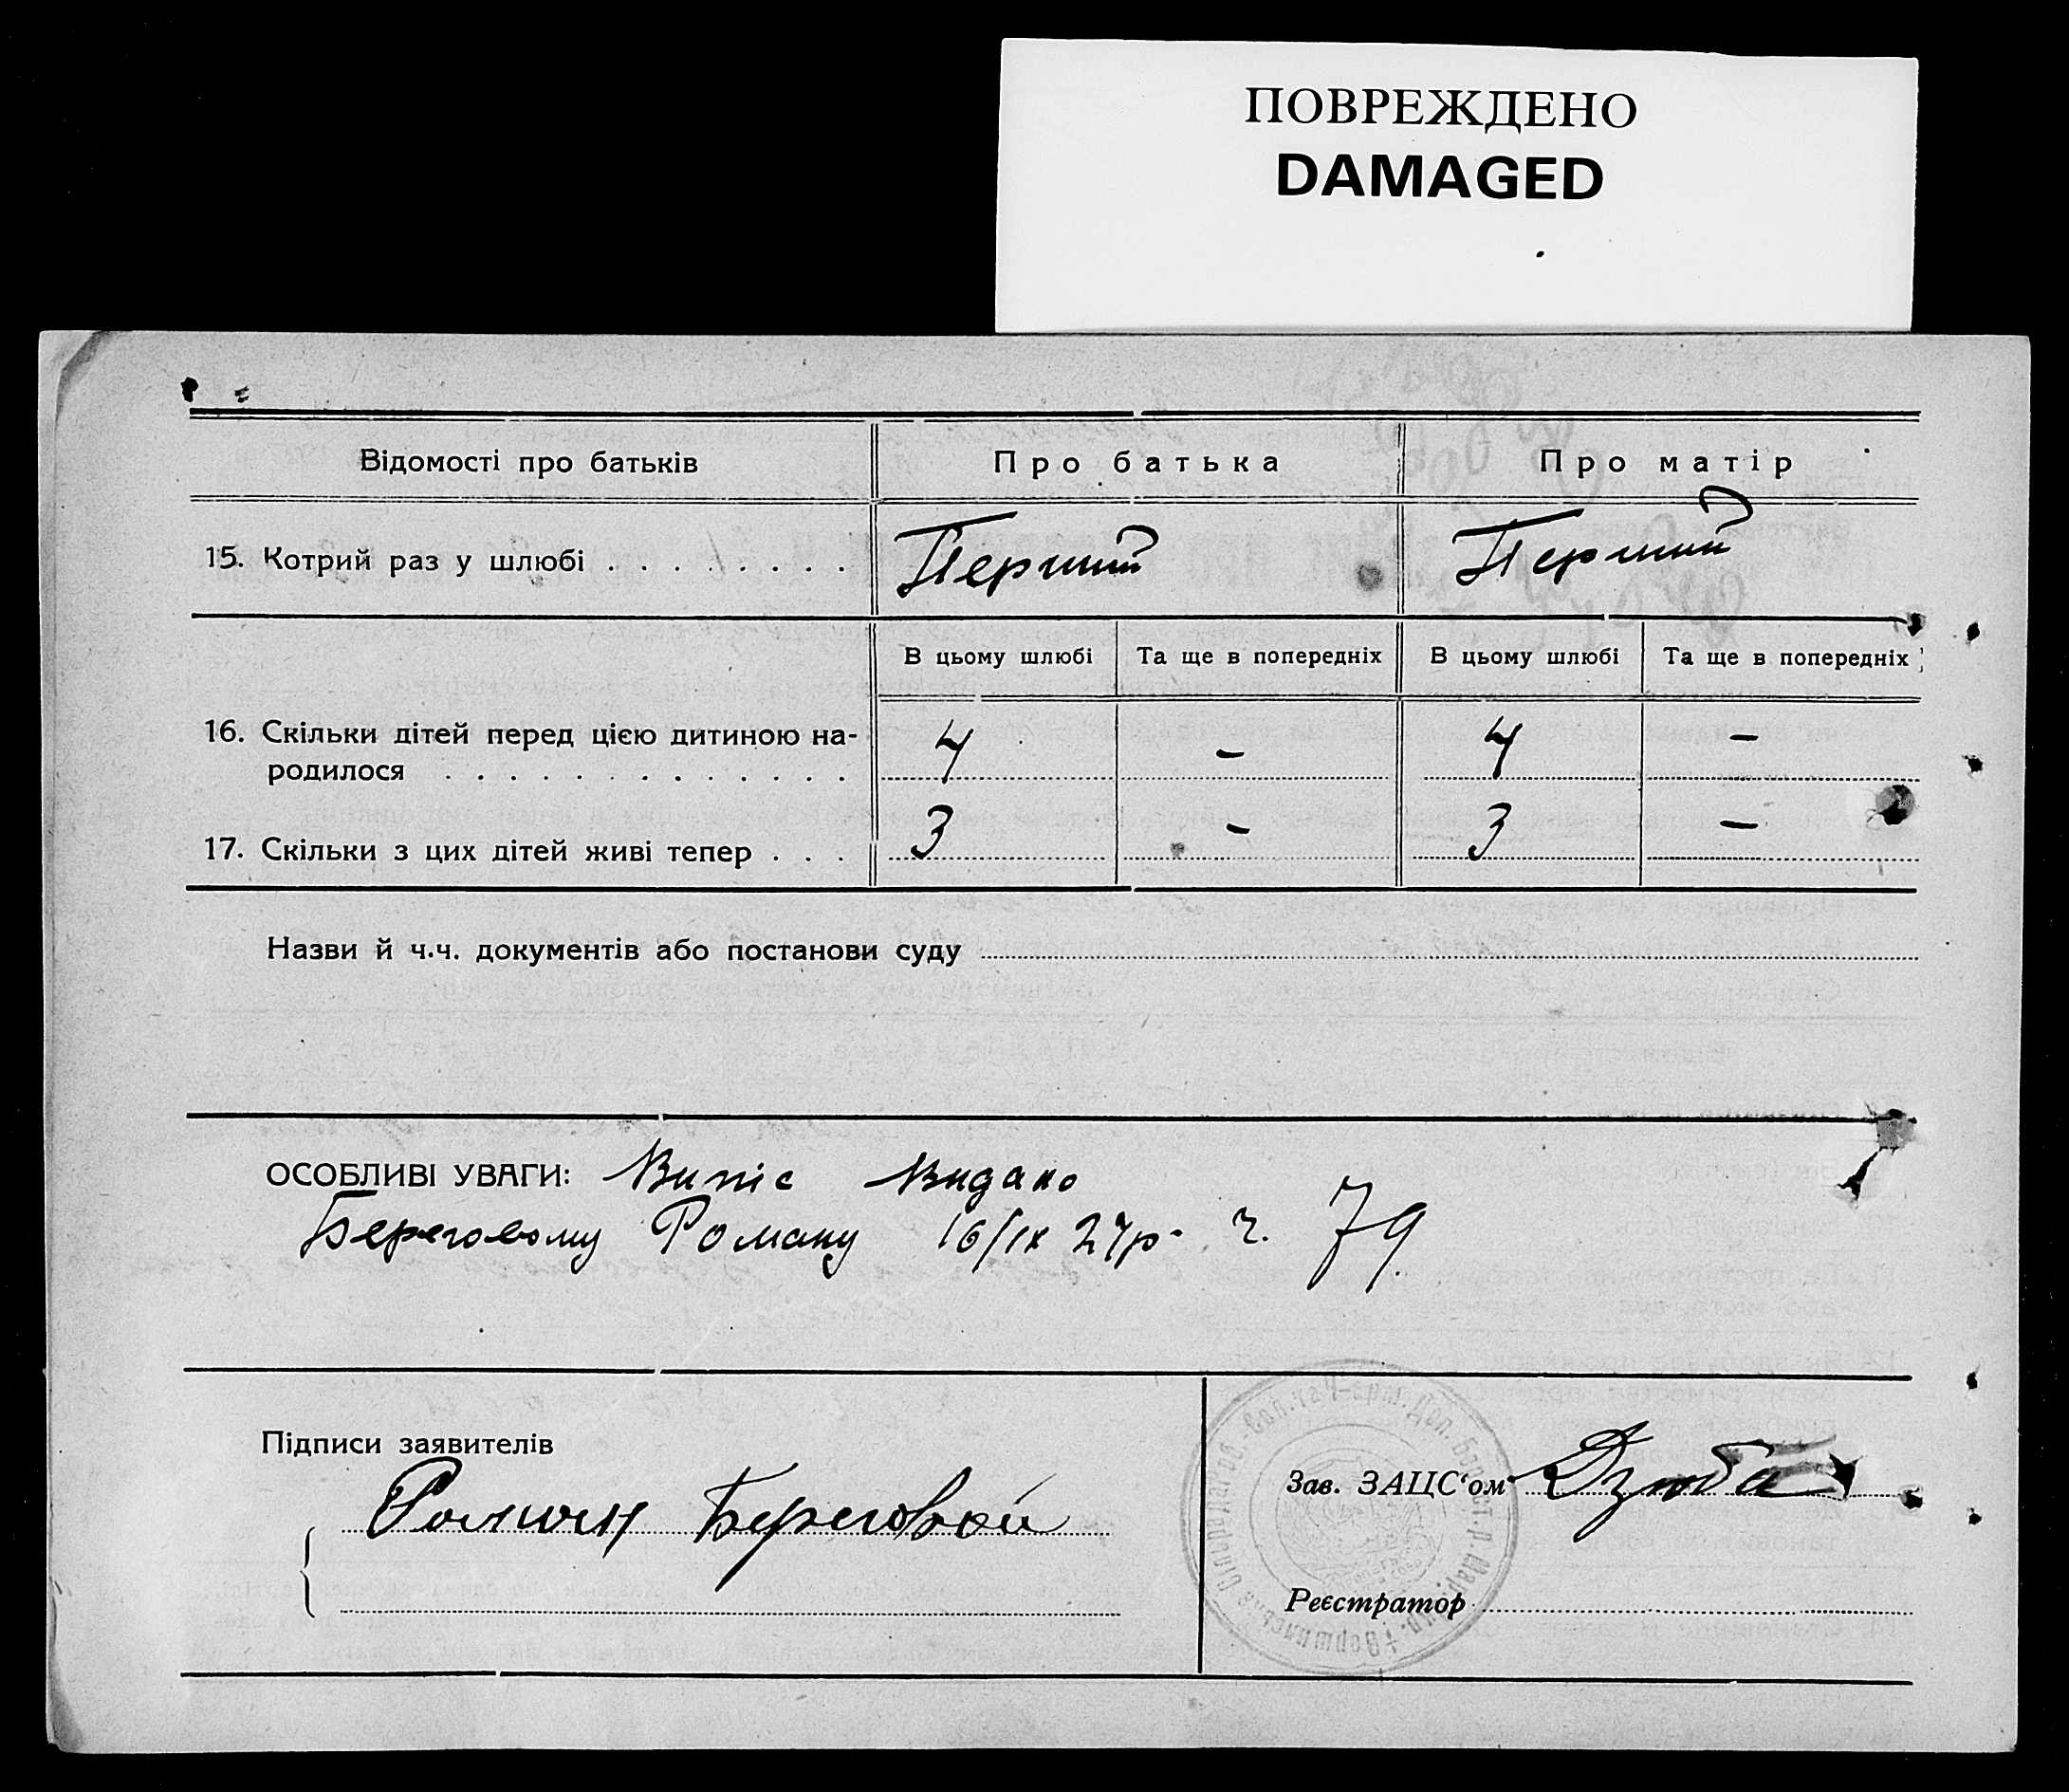 ПОВРЕЖДЕНО
DAMAGED
Відомості про батьків
Про батька
Про матір
15. Котрий раз у шлюбі . . . . . . . .
Перший
Перший
В цьому шлюбі
Та ще в попередніх
В цьому шлюбі
Та ще в попередніх
16. Скільки дітей перед цією дитиною на-
родилося . . . . . . . . . . . . .
4
-
4
-
17. Скільки з цих дітей живі тепер . . .
3
-
3
-
Назви й ч.ч. документів або постанови суду
ОСОБЛИВІ УВАГИ: Випис видано
Береговому Роману 16/IX 27р. ч. 79
Підписи заявителів
Роман Береговой
Зав. ЗАЦС‘ом Дзюба
Реєстратор